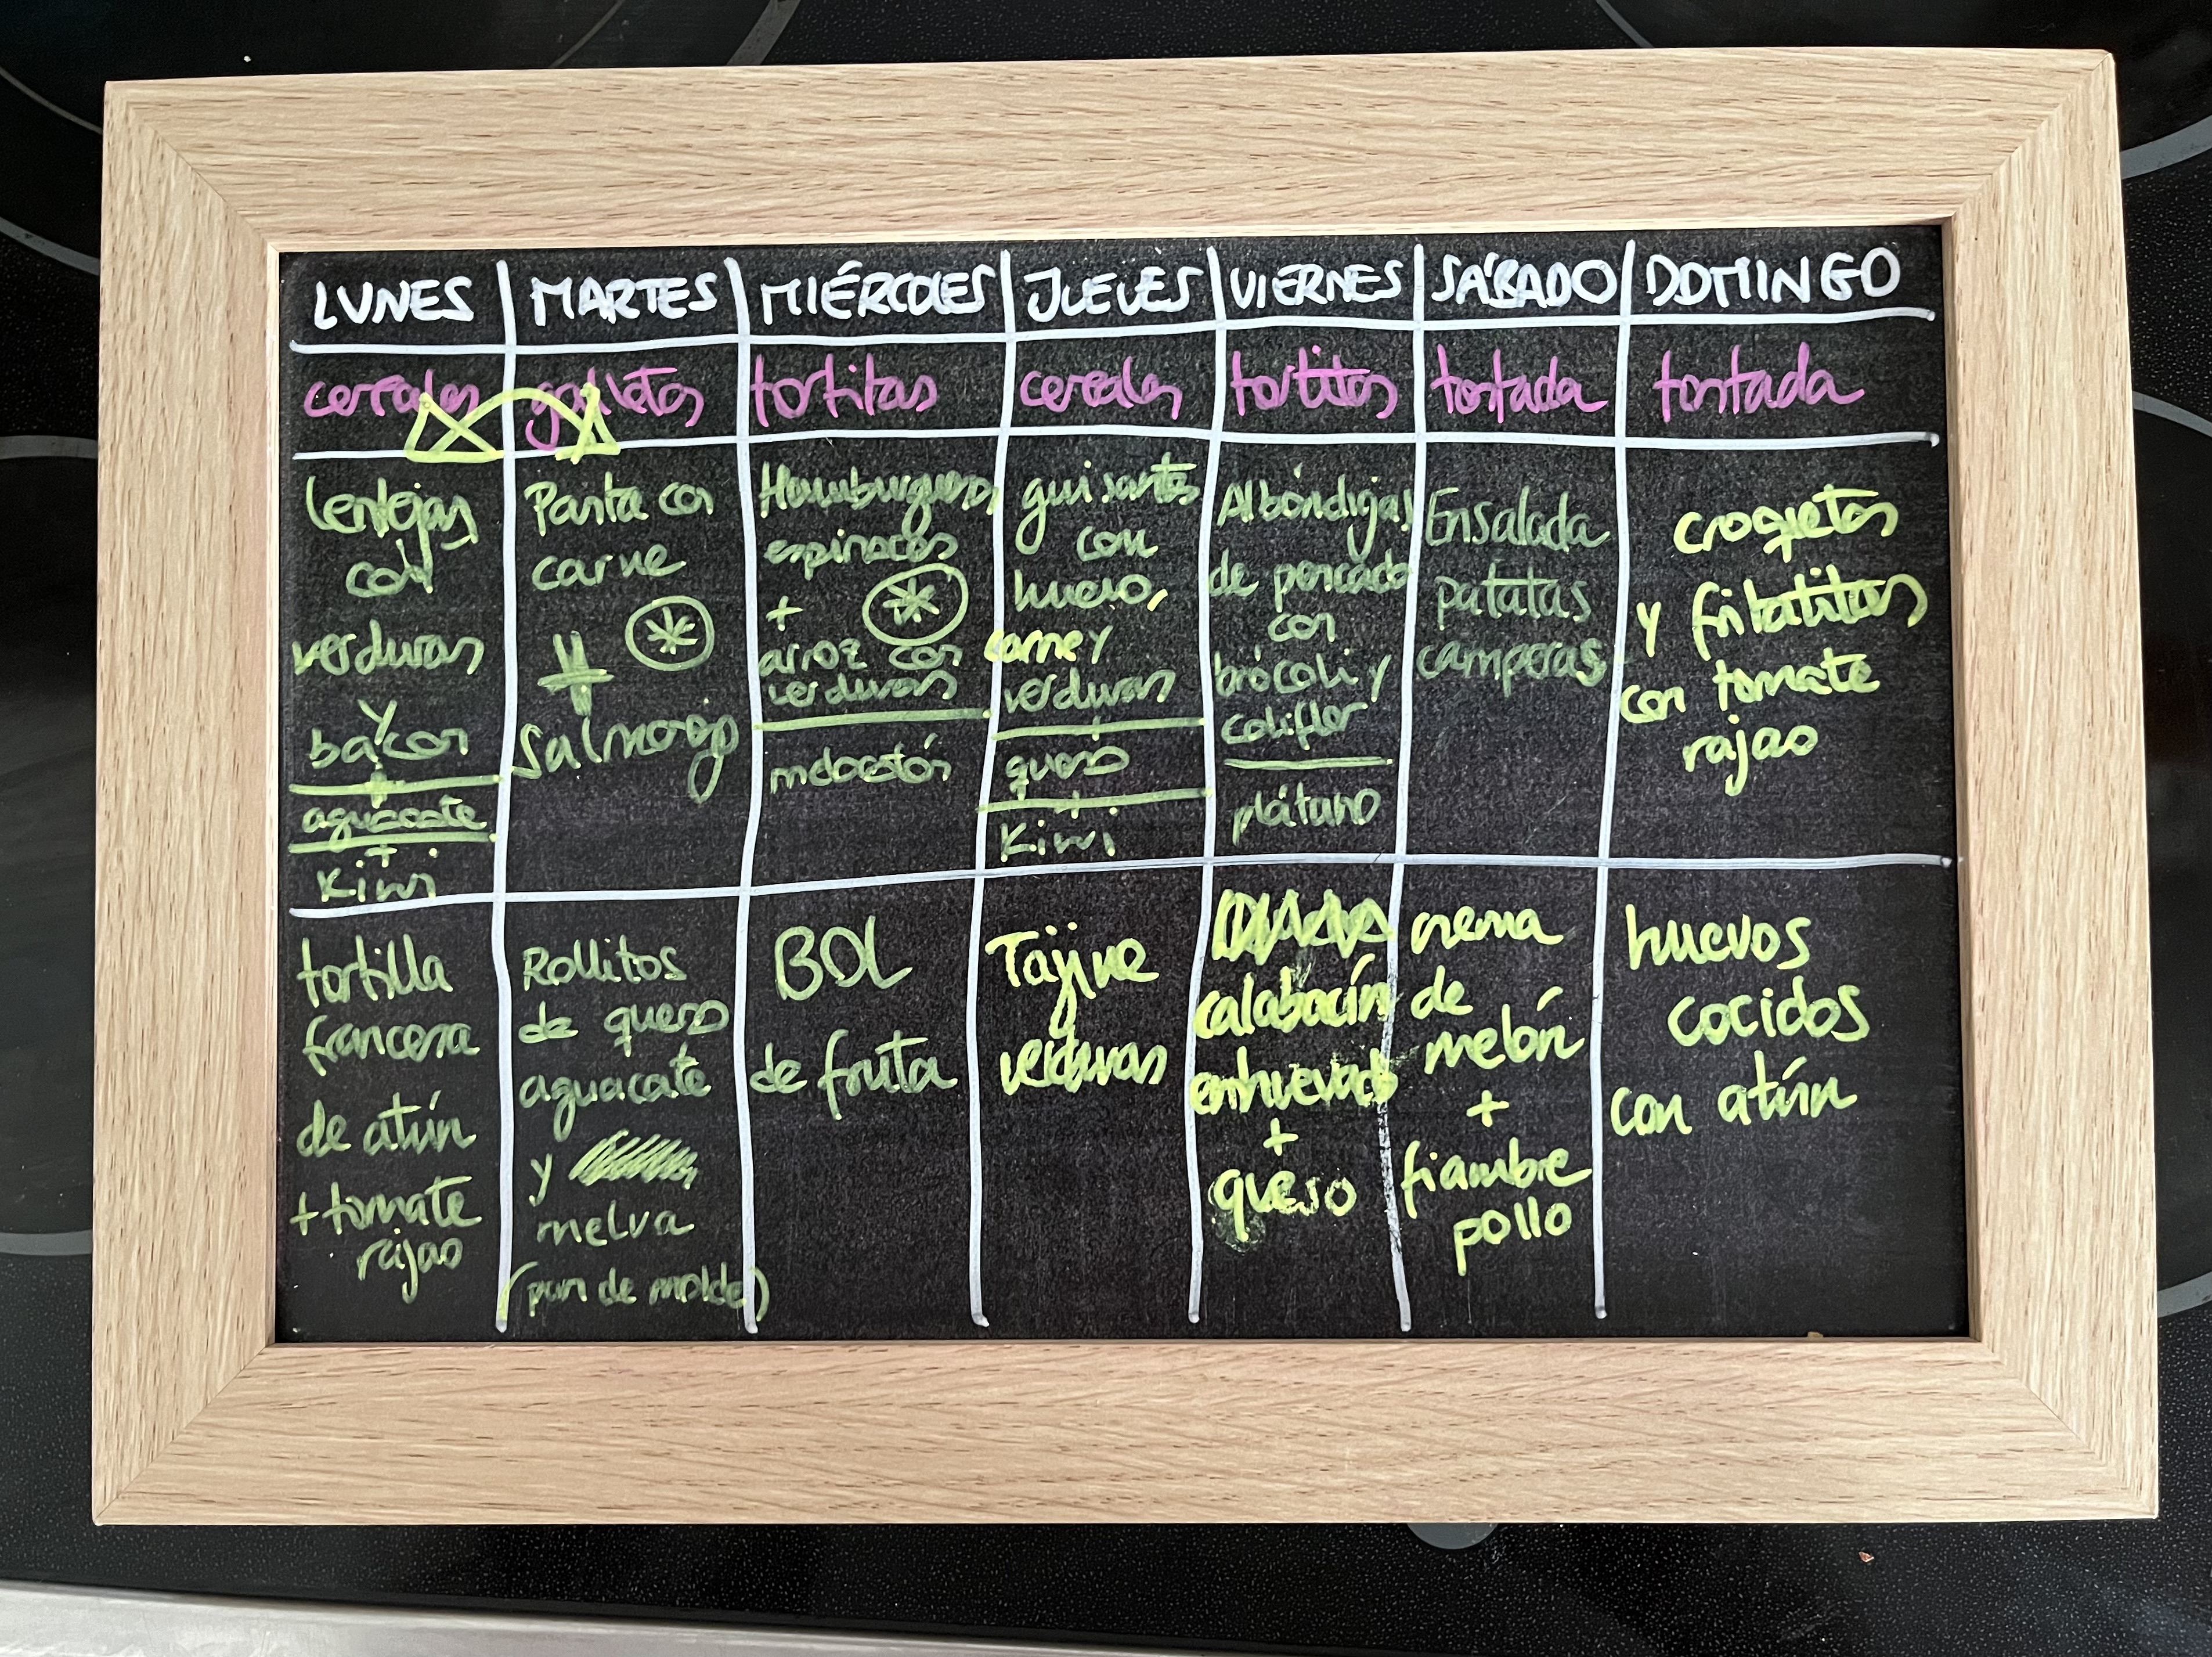 LUNES MARTES MIÉRCOLES JUEVES VIERNES SÁBADO DOMINGO
cereales galletas tortitas cereales tortitas tostada tostada
Lentejas
con
verduras
y
bacon
+
aguacate
+
Kiwi
Pasta con
carne
+
Salmorejo
Hamburguesas
espinacas
+
arroz con
verduras
melocotón
guisantes
con
huevo,
carne y
verduras
+
queso
+
Kiwi
Albóndigas
de pescado
con
brócoli y
coliflor
plátano
Ensalada
patatas
camperas
croquetas
y fritatitas
con tomate
rajao
tortilla
francesa
de atún
+ tomate
rajao
Rollitos
de queso
aguacate
y
melva
(pan de molde)
BOL
de fruta
Tajine
verduras
calabacín
enhuevado
+
queso
crema
de
melón
+
fiambre
pollo
huevos
cocidos
con atún